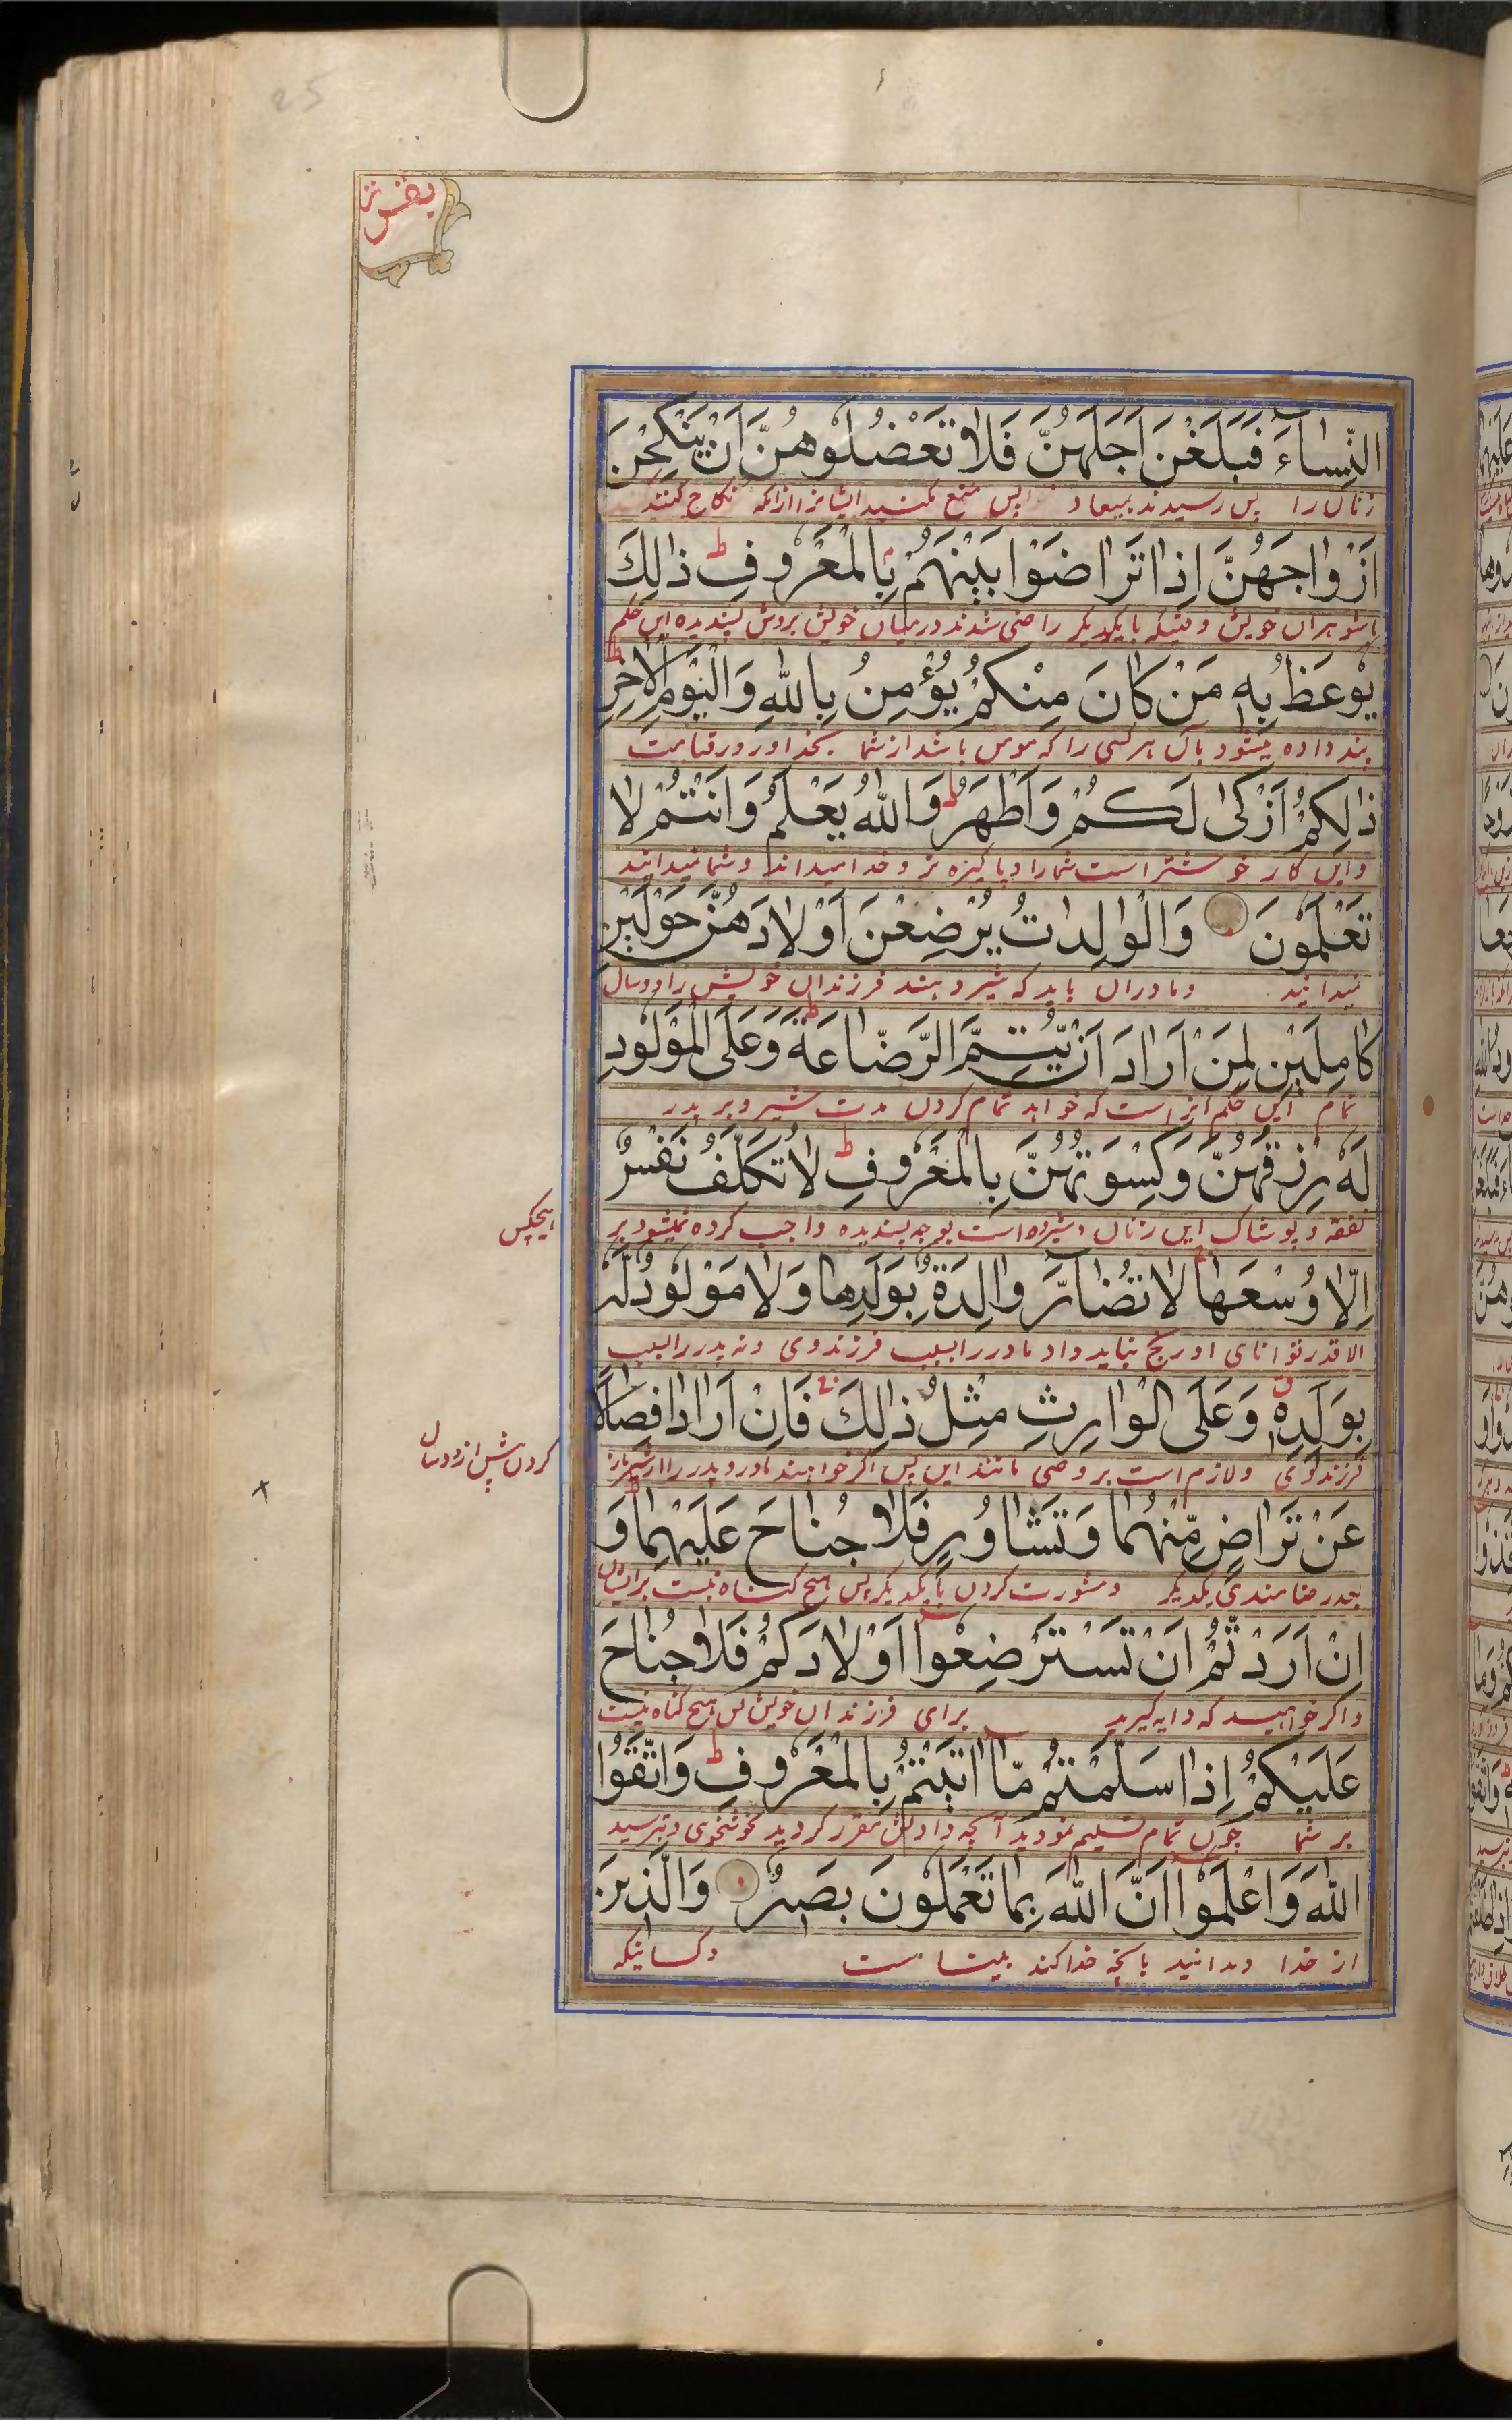 النِّسَآءَ فَبَلَغْنَ اَجَلَهُنَّ فَلَا تَعْضُلُوهُنَّ اَنْ يَنْكِحْنَ
زنان را پس رسیدند بمیعاد پس منع مکنید ایشانرا ازانکه نکاح کنند
اَزْوَاجَهُنَّ اِذَا تَرَاضَوْا بَيْنَهُمْ بِالْمَعْرُوفِ ط ذٰلِكَ
باشوهران خویش وقتیکه بایکدیکر راضی شدند درمیان خویش بروش پسندیده این حکم
يُوعَظُ بِهٖ مَنْ كَانَ مِنْكُمْ يُؤْمِنُ بِاللّٰهِ وَالْيَوْمِ الْاٰخِرِ ط
پند داده میشود بآن هرکسی را که مومن باشد از شما بخدا وروز قیامت
ذٰلِكُمْ اَزْكٰى لَكُمْ وَاَطْهَرُ ط وَاللّٰهُ يَعْلَمُ وَاَنْتُمْ لَا
واین کار خوشتر است شمارا وپاکیزه تر وخدا میداند وشما نمیدانید
تَعْلَمُونَ وَالْوَالِدَاتُ يُرْضِعْنَ اَوْلَادَهُنَّ حَوْلَيْنِ
نمیدانید ومادران باید که شیر دهند فرزندان خویش را دوسال
كَامِلَيْنِ لِمَنْ اَرَادَ اَنْ يُّتِمَّ الرَّضَاعَةَ ط وَعَلَى الْمَوْلُودِ
تمام این حکم انراست که خواهد تمام کردن مدت شیر وبر پدر
لَهٗ رِزْقُهُنَّ وَكِسْوَتُهُنَّ بِالْمَعْرُوفِ ط لَا تُكَلَّفُ نَفْسٌ
نفقه وپوشاک این زنان شیرده است بوجه پسندیده واجب کرده نمیشود بر
هیچکس
اِلَّا وُسْعَهَا لَا تُضَآرَّ وَالِدَةٌ بِوَلَدِهَا وَلَا مَوْلُودٌ لَهٗ
الا قدر توانای او رنج نباید داد مادر را بسبب فرزند وی ونه پدر را بسبب
بِوَلَدِهٖ وَعَلَى الْوَارِثِ مِثْلُ ذٰلِكَ فَاِنْ اَرَادَا فِصَالًا
فرزند وی ولازم است بر وصی مانند این پس اکر خواهند مادر وپدر از شیر باز
کردن پیش از دوسال
عَنْ تَرَاضٍ مِّنْهُمَا وَتَشَاوُرٍ فَلَا جُنَاحَ عَلَيْهِمَا وَ
بعد رضامندی یکدیکر ومشورت کردن بایکدیکر پس هیچ کناه نیست برایشان
اِنْ اَرَدْتُّمْ اَنْ تَسْتَرْضِعُوا اَوْلَادَكُمْ فَلَا جُنَاحَ
واکر خواهید که دایه کیرید برای فرزندان خویش پس هیچ کناه نیست
عَلَيْكُمْ اِذَا سَلَّمْتُمْ مَّآ اٰتَيْتُمْ بِالْمَعْرُوفِ ط وَاتَّقُوا
بر شما چون تمام تسلیم نمودید آنچه دادنش مقرر کردید بخوشخوی وبترسید
اللّٰهَ وَاعْلَمُوا اَنَّ اللّٰهَ بِمَا تَعْمَلُونَ بَصِيرٌ وَالَّذِينَ
از خدا وبدانید بانچه خدا کند بینا ست وکسانیکه